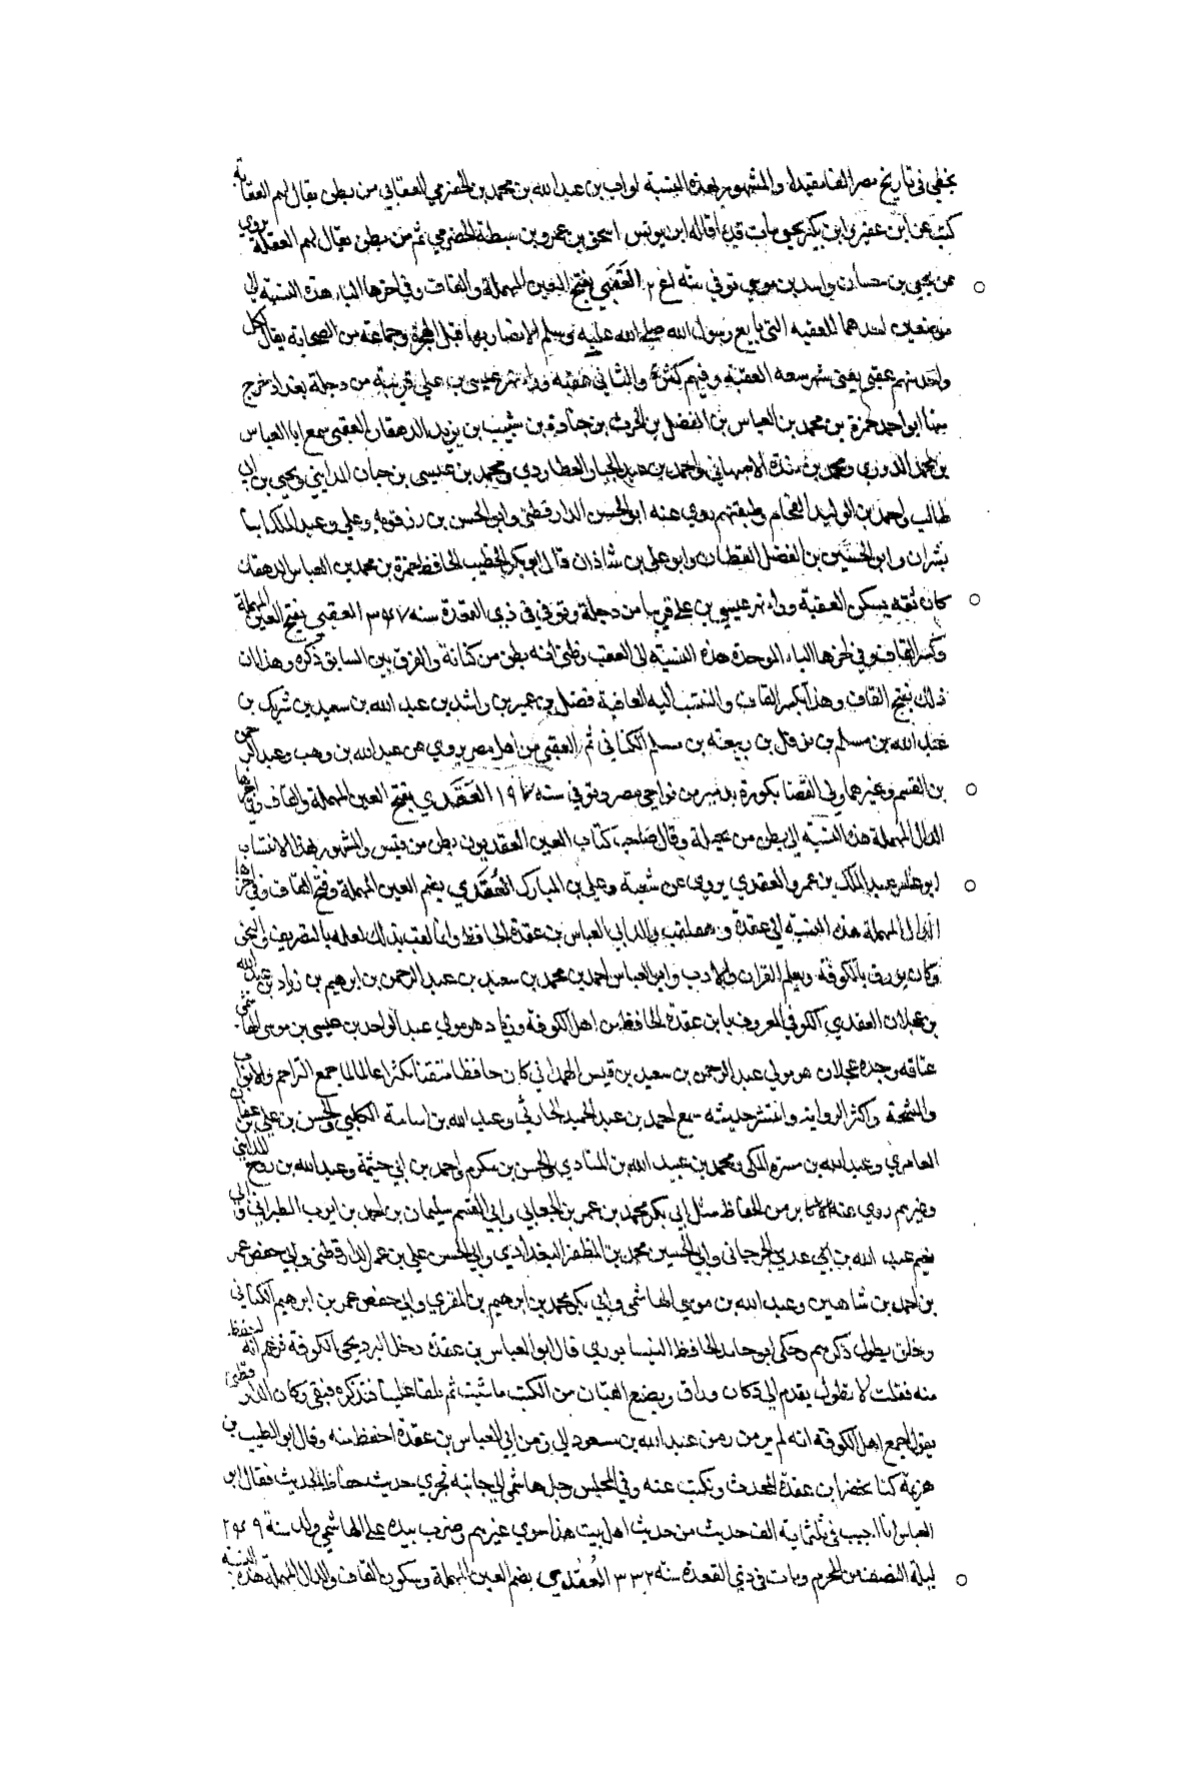 بخطي في تاريخ مصر الفا مقيدا والمشهور بهذه النسبة لواب بن عبد الله بن محمد بن الحضرمي العقابي من بطن يقال لهم العقابة
كتب عن ابن عفير وابن بكير يحيى مات قديما قاله ابن يونس اسحق بن عمرو بن سبطة الحضرمي ثم من بطن يقال لهم العقلة يروي
عن يحيى بن حسان واسد بن موسى توفي سنة العقبي بفتح العين المهملة والقاف وفي اخرها الباء هذه النسبة الى
موضعين احدهما العقبة التي بايع رسول الله صلى الله عليه وسلم الانصار بها قبل الهجرة وجماعة من الصحابة يقال لكل
واحد منهم عقبي يعني شهر بيعه العقبة وفيهم كثرة والثاني عقبة وراء نهر عيسى بن علي قريبة من دجلة بغداد خرج
منها ابو احمد حمزة بن محمد بن العباس بن الفضل بن الحرث بن جنادة بن شبيب بن يزيد الدهقان العقبي سمع ابا العباس
بن محمد الدوري ومحمد بن مندة الاصبهاني واحمد بن عبد الجبار العطاردي ومحمد بن عيسى بن حيان المدايني ويحيى بن ابي
طالب واحمد بن الوليد الفحام وطبقتهم روى عنه ابو الحسن الدارقطني وابو الحسن بن رزقويه وعلي وعبد الملك ابنا
بشران وابو الحسين بن الفضل القطان وابو علي بن شاذان قال ابو بكر الخطيب الحافظ حمزة بن محمد بن العباس الدهقان
كان ثقة يسكن العقبة وراء نهر عيسى بن علي قريبا من دجلة وتوفي في ذي القعدة سنة ٣٤٧ العقبي بفتح العين المهملة
وكسر القاف وفي اخرها الباء الموحدة هذه النسبة الى العقب وظني انه بطن من كنانة والفرق بين السابق ذكره وهذا ان
ذلك بفتح القاف وهذا بكسر القاف والمنتسب اليه العافية فضل بن عمير بن راشد بن عبد الله بن سعيد بن شريك بن
عبد الله بن مسلم بن نوفل بن ربيعة بن مسلم الكناني ثم العقبي من اهل مصر يروي عن عبد الله بن وهب وعبد الرحمن
بن القسم وغيرهما ولي القضا بكورة بدمير من نواحي مصر وتوفي في سنة ١٩٧ العقدي بفتح العين المهملة والقاف وفي اخرها
الدال المهملة هذه النسبة الى بطن من بجيلة وقال صاحب كتاب العين العقديون بطن من قيس والمشهور بهذا الانتساب
ابو عامر عبد الملك بن عمرو العقدي يروي عن شعبة وعلي بن المبارك العقدي بضم العين المهملة وفتح القاف وفي اخرها
الدال المهملة هذه النسبة الى عقدة وهو لقب والد ابي العباس بن عقدة الحافظ وانما لقب بذلك لعلمه بالتصريف والنحو
وكان يورق بالكوفة ويعلم القران والادب وابو العباس احمد بن محمد بن سعيد بن عبد الرحمن بن ابرهيم بن زياد بن عبد الله
بن عجلان العقدي الكوفي المعروف بابن عقدة الحافظ من اهل الكوفة وزياد هو مولى عبد الواحد بن عيسى بن موسى الهاشمي
عتاقه وجده عجلان هو مولى عبد الرحمن بن سعيد بن قيس الهمداني كان حافظا متقنا مكثرا عالما جمع التراجم والابواب
والشيخة واكثر الرواية وانتشر حديثه سمع احمد بن عبد الحميد الحارثي وعبد الله بن اسامة الكلبي والحسن بن علي بن عفان
العامري وعبد الله بن مسرة المكي ومحمد بن عبيد الله بن المنادي والحسن بن مكرم واحمد بن ابي خيثمة وعبد الله بن روح المدايني
وغيرهم روى عنه الاكابر من الحفاظ مثل ابي بكر محمد بن عمر بن الجعابي وابي القسم سليمان بن احمد بن ايوب الطبراني وابي
نعيم عبد الله بن عدي الجرجاني وابي الحسين محمد بن المظفر البغدادي وابي الحسن علي بن عمر الدارقطني وابي حفص عمر
بن احمد بن شاهين وعبد الله بن موسى الهاشمي وابي بكر محمد بن ابرهيم بن المقري وابي حفص عمر بن ابرهيم الكتاني
وخلق يطول ذكرهم وحكى ابو حامد الحافظ النيسابوري قال ابو العباس بن عقدة دخل البرديجي الكوفة فزعم انه احفظ
منه فقلت لا تطول يقدم الى دكان وراق ويضع القبان من الكتب ما شيت ثم يلقا علينا فنذكره فبقي وكان الدارقطني
يقول اجمع اهل الكوفة انه لم ير من زمن عبد الله بن مسعود الى زمن ابي العباس بن عقدة احفظ منه وقال ابو الطيب بن
هرثمة كنا بحضرة ابن عقدة المحدث ونكتب عنه وفي المجلس رجل هاشمي الى جانبه فجرى حديث حفاظ الحديث فقال ابو
العباس انا اجيب في ثلثماية الف حديث من حديث اهل بيت هذا سوى غيرهم وضرب بيده على الهاشمي ولد سنة ٢٤٩
ليلة النصف من المحرم ومات في ذي القعدة سنة ٣٣٢ العقدي بضم العين المهملة وسكون القاف والدال المهملة هذه النسبة